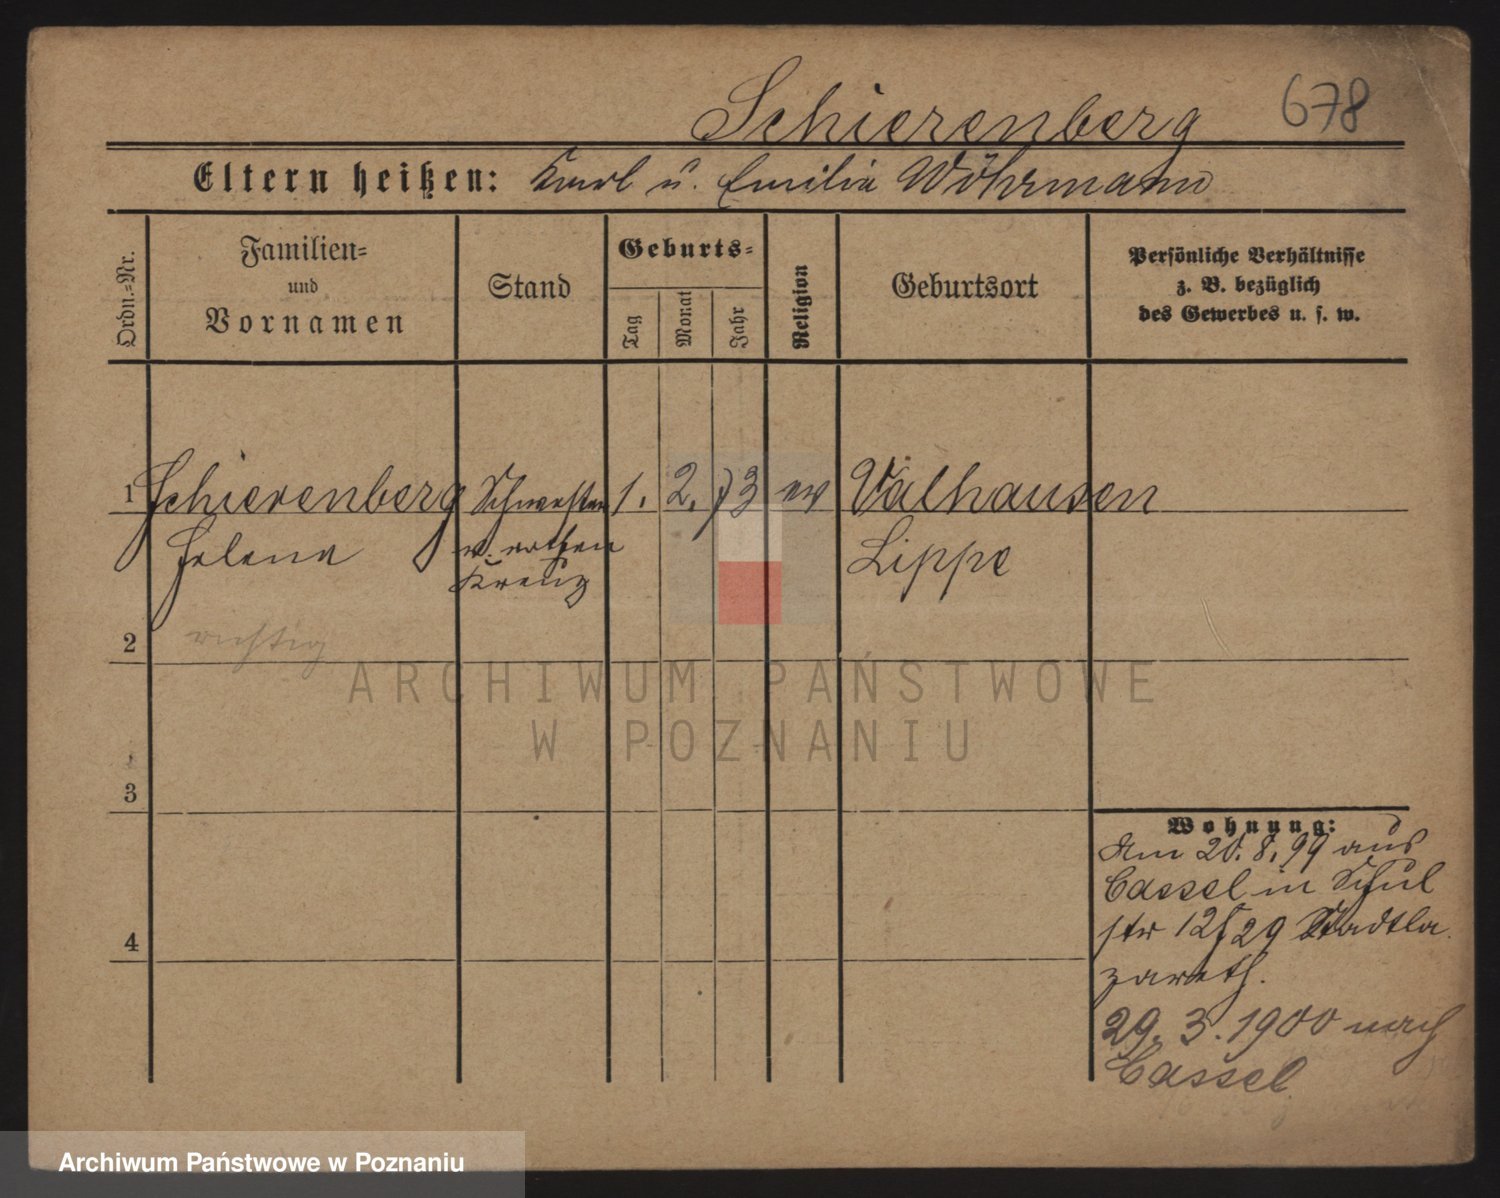 Schierenberg 678
Eltern heißen: Karl u. Emilie Wöhrmann
Ordn.-Nr.
Familien-
und
Vornamen
Stand
Geburts-
Tag
Monat
Jahr
Religion
Geburtsort
Persönliche Verhältnisse
z. B. bezüglich
des Gewerbes u. s. w.
1 Schierenberg Schwester 1. 2. 73 ev Valhausen
Helene v. rothen Lippe
Kreuz
2 richtig
3
4
Wohnung:
Am 20. 8. 99 aus
Cassel in Schul
str 12/29 Stadtla
zareth.
29. 3. 1900 nach
Cassel.
ARCHIWUM PAŃSTWOWE
W POZNANIU
Archiwum Państwowe w Poznaniu